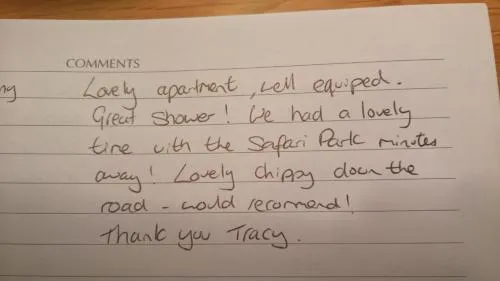 COMMENTS
ng Lovely apartment, well equiped.
Great Shower! We had a lovely
time with the Safari Park minutes
away! Lovely Chippy down the
road - would recommend!
Thank you Tracy.